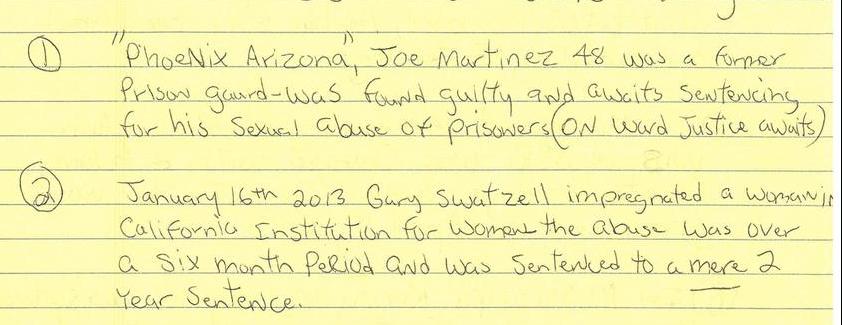 ① "PhoeNix Arizona", Joe Martinez 48 was a former
Prison gaurd-was found guilty and awaits Sentencing
for his Sexual abuse of prisoners (ON ward Justice awaits)
② January 16th 2013 Gary Swatzell impregnated a woman in
California Institution for Women the abuse was over
a Six month Period and was Sentenced to a mere 2
Year Sentence.